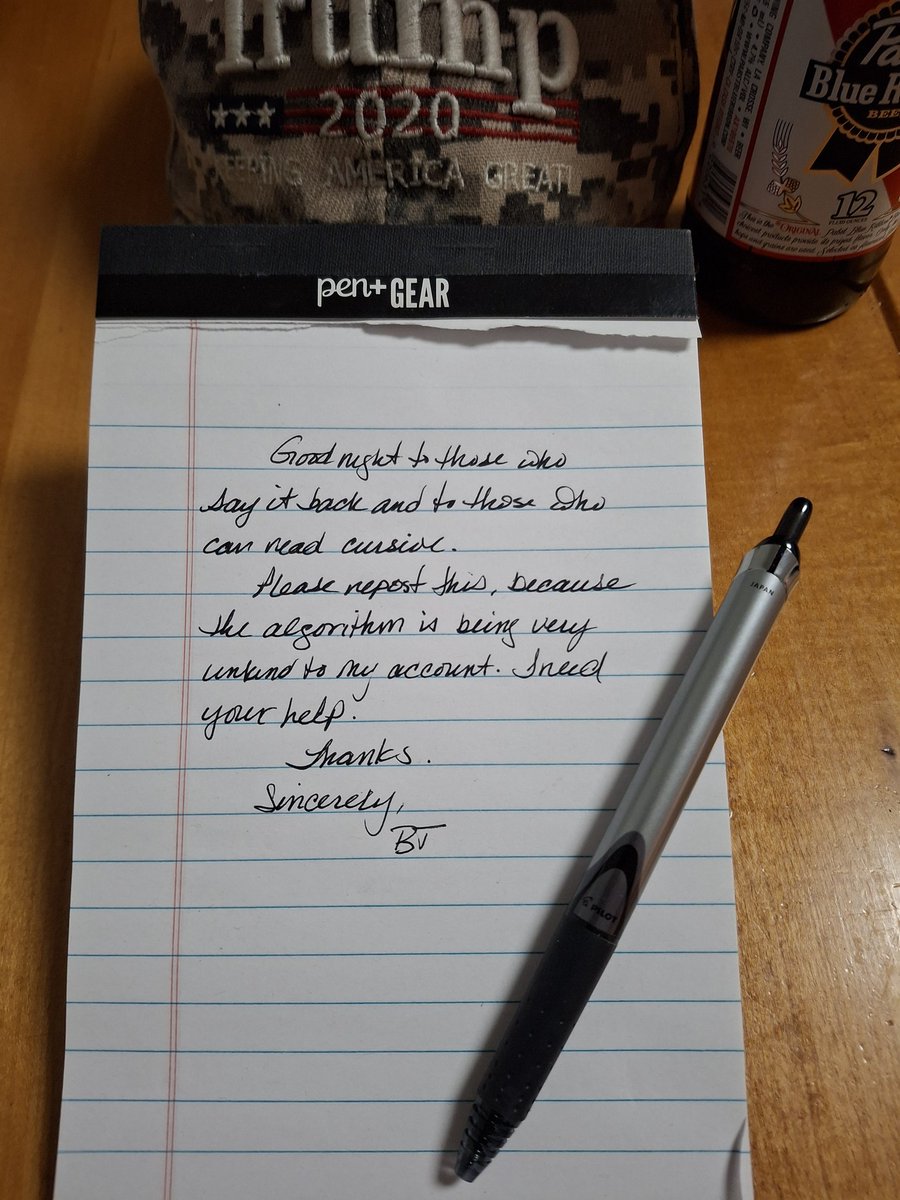 Trump
2020
KEEPING AMERICA GREAT!
Pa
Blue R
BEER
12
FLUID OUNCES
This is the "ORIGINAL Pabst Blue Ribbon
pen+GEAR
Good night to those who
say it back and to those who
can read cursive.
Please repost this, because
the algorithm is being very
unkind to my account. I need
your help.
Thanks.
Sincerely,
BJ
JAPAN
PILOT